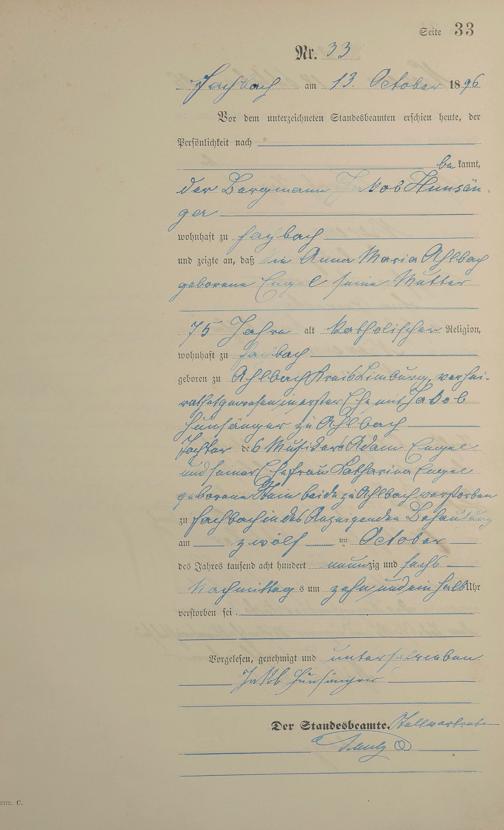 Seite 33
Nr. 33
Fachbach am 13. October 1896
Vor dem unterzeichneten Standesbeamten erschien heute, der
Persönlichkeit nach
bekannt,
der Bergmann Jakob Hunsän-
ger
wohnhaft zu Fachbach
und zeigte an, daß die Anna Maria Ahlbach
geborene Engel seine Mutter
75 Jahre alt katholischer Religion,
wohnhaft zu Fachbach
geboren zu Ahlbach Kreis Limburg, verhei-
rathet gewesen in erster Ehe mit Jakob
Hunsänger zu Ahlbach
Tochter des Adam Engel
und seiner Ehefrau Katharina Engel
geborene beide zu Ahlbach verstorben
zu Fachbach in des Anzeigenden Behausung
am zwölf ten October
des Jahres tausend acht hundert neunzig und sechs
Nachmittags um zehn und ein halb Uhr
verstorben sei.
Vorgelesen, genehmigt und unterschrieben
Jakob Hunsänger
Der Standesbeamte.